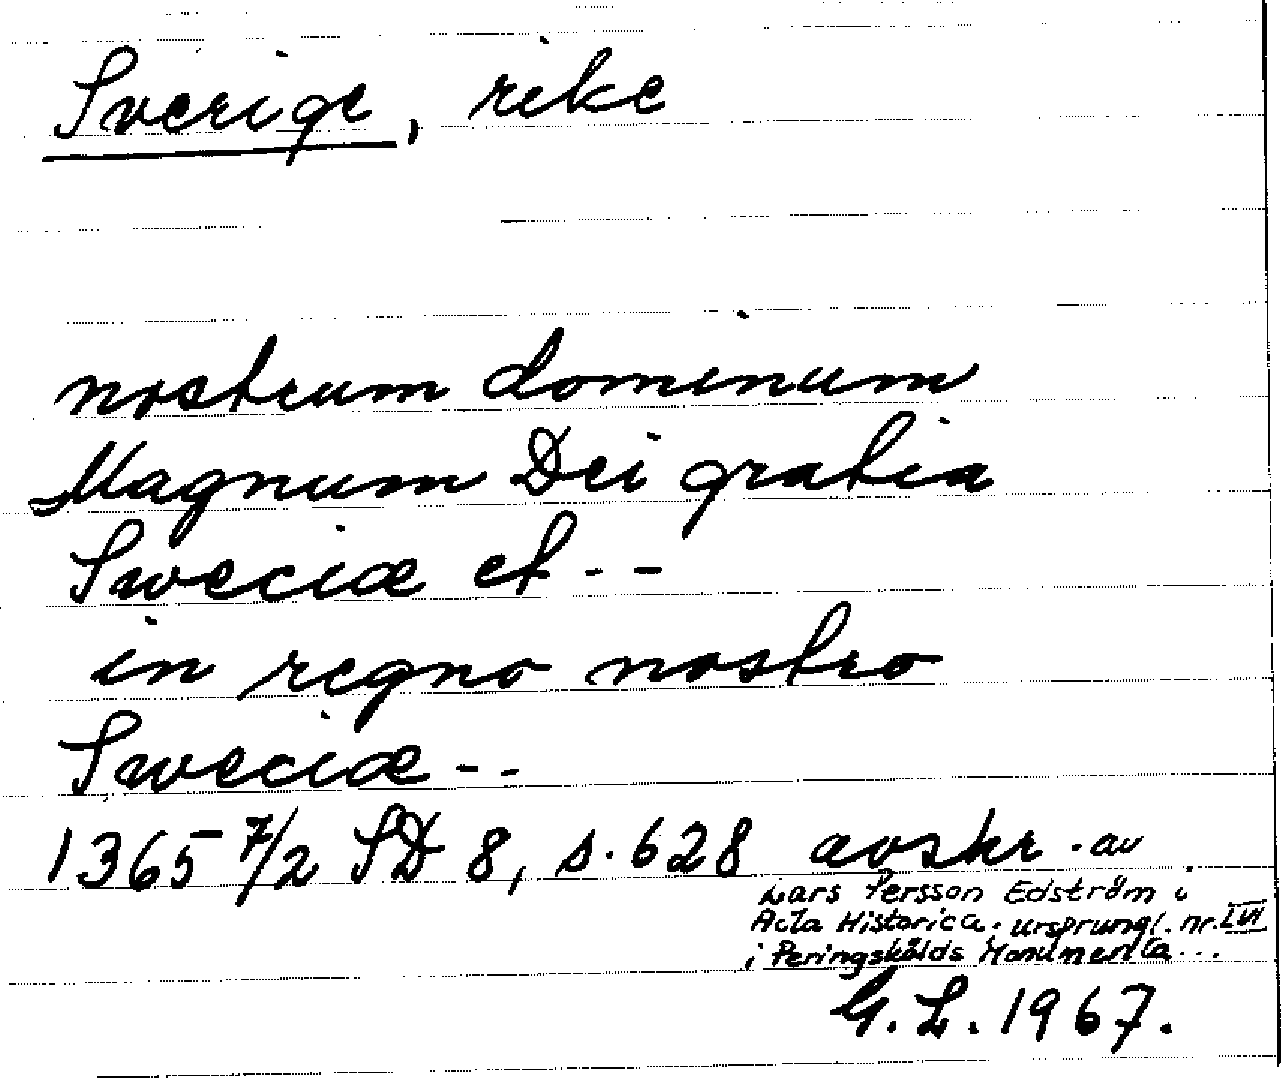 Sverige, rike
nostrum dominum
Magnum Dei gratia
Sweciæ et - -
in regno nostro
Sweciæ - -
1365 7/2 SD 8, s. 628 avskr. av
Lars Persson Edström i
Acta Historica. ursprungl. nr. LVI
i Peringskölds Monumenta...
G. L. 1967.